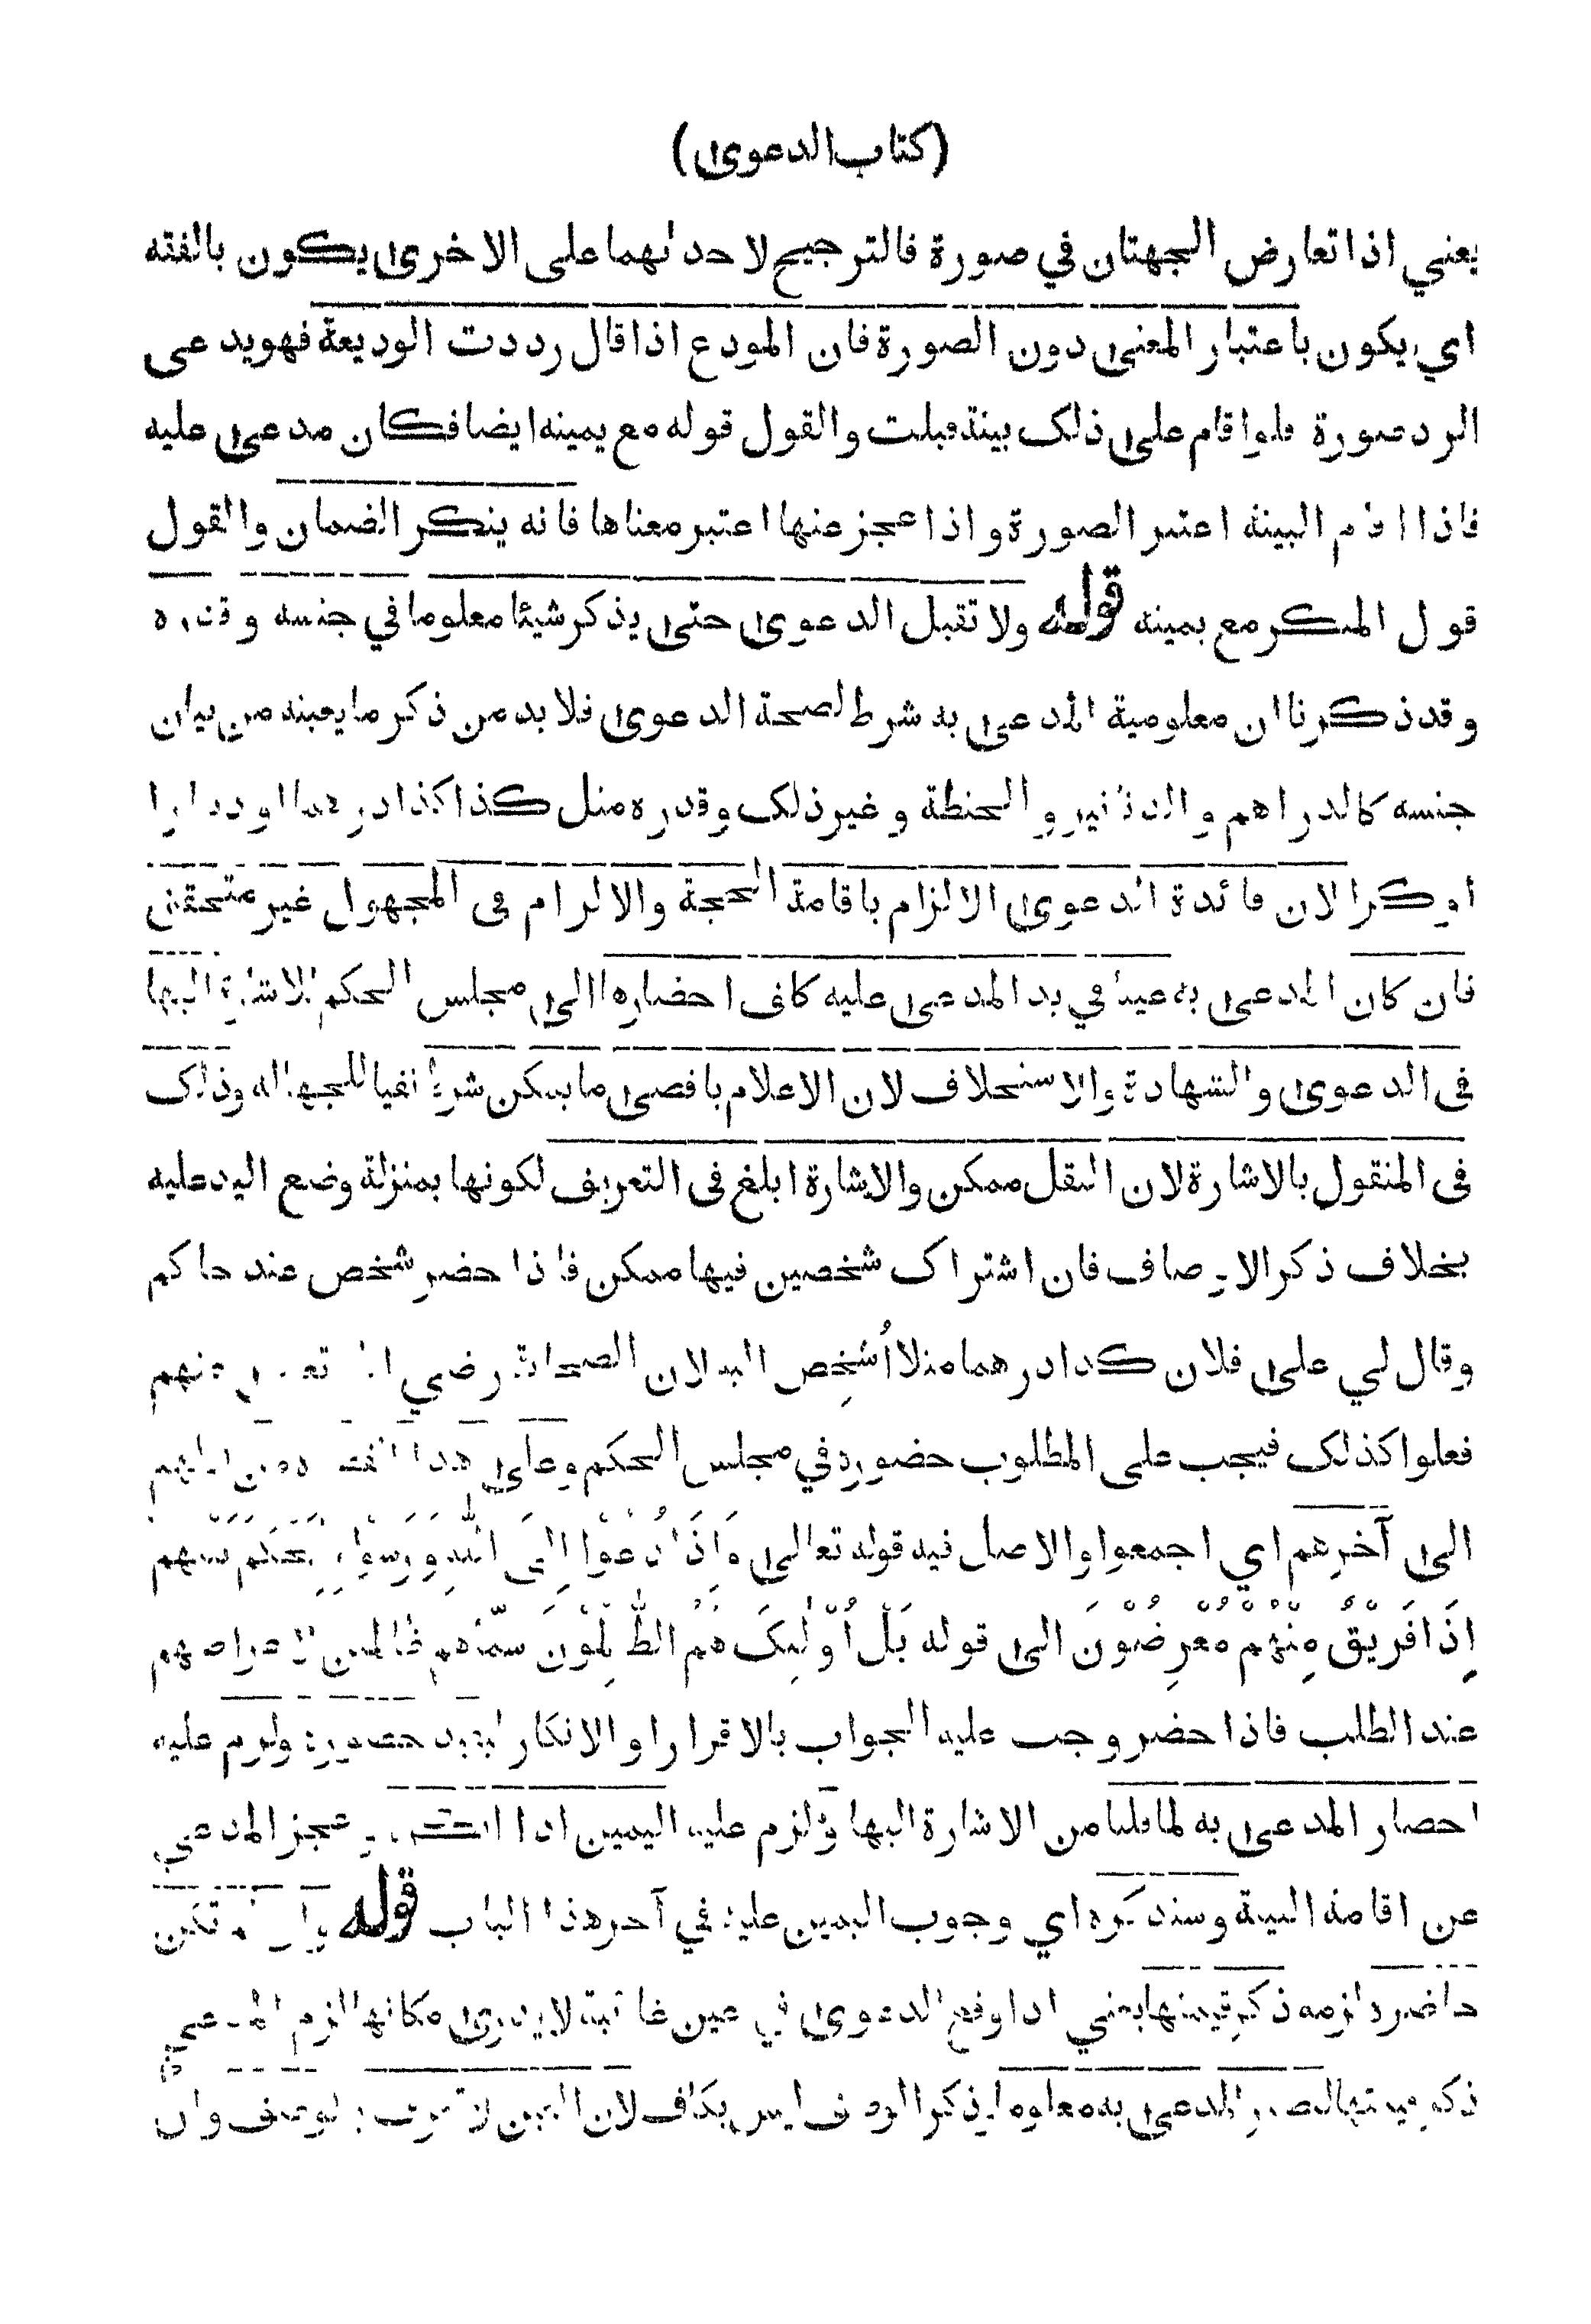 (كتاب الدعوى)
يعني اذا تعارض الجهتان في صورة فالترجيح لاحدٰهما على الاخرى يكون بالفقه
اي يكون باعتبار المعنى دون الصورة فان المودع اذا قال رددت الوديعة فهو يدعى
الرد صورة فلو اقام على ذلك بينة قبلت والقول قوله مع يمينه ايضا فكان مدعى عليه
فاذا اقام البينة اعتبر الصورة و اذا عجز عنها اعتبر معناها فانه ينكر الضمان والقول
قول المنكر مع يمينه قوله ولا تقبل الدعوى حتى يذكر شيئا معلوما في جنسه و قدره
و قد ذكرنا ان معلومية المدعى به شرط لصحة الدعوى فلا بد من ذكر ما يعينه من بيان
جنسه كالدراهم و الدنانير و الحنطة و غير ذلك وقدره مثل كذا كذا درهما او دينارا
او كرا لان فائدة الدعوى الالزام باقامة الحجة والالزام فى المجهول غير متحقق
فان كان المدعى به عينا في يد المدعى عليه كلف احضارها الى مجلس الحكم للاشارة اليها
فى الدعوى والشهادة والاستحلاف لان الاعلام باقصى ما يمكن شرط نفيا للجهالة وذلك
فى المنقول بالاشارة لان النقل ممكن والاشارة ابلغ فى التعريف لكونها بمنزلة وضع اليد عليه
بخلاف ذكر الاوصاف فان اشتراك شخصين فيها ممكن فاذا حضر شخص عند حاكم
وقال لي على فلان كذا درهما مثلا اُشخِص اليه لان الصحابة رضي الله تعالى عنهم
فعلوا كذلك فيجب على المطلوب حضوره في مجلس الحكم وعلى هذا القضاة من اولهم
الى آخرهم اي اجمعوا والاصل فيه قوله تعالى وَاِذَا دُعُوْا اِلَى اللّٰهِ وَرَسُوْلِهٖ لِيَحْكُمَ بَيْنَهم
اِذَا فَرِيْقٌ مِنْهُمْ مُعْرِضُوْنَ الى قوله بَلْ اُوْلٰئِكَ هُمُ الظّٰلِمُوْنَ سمّاهم ظالمين لاعراضهم
عند الطلب فاذا حضر وجب عليه الجواب بالاقرار او الانكار ليفيد حضوره ولزم عليه
احضار المدعى به لما قلنا من الاشارة اليها ولزم عليه اليمين اذا انكر و عجز المدعي
عن اقامة البينة وسنذكره اي وجوب اليمين عليه في آخر هذا الباب قوله وان لم تكن
حاضرة لزمه ذكر قيمتها يعني اذا وقع الدعوى في عين غائبة لا يدرى مكانها لزم المدعي
ذكر قيمتها ليصير المدعى به معلوما اذ ذكر الوصف ليس بكاف لان العين لا تعرف بالوصف وان